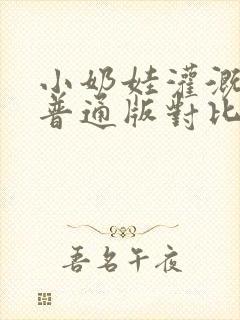 小奶娃灌溉
普通版對比
吾名午夜